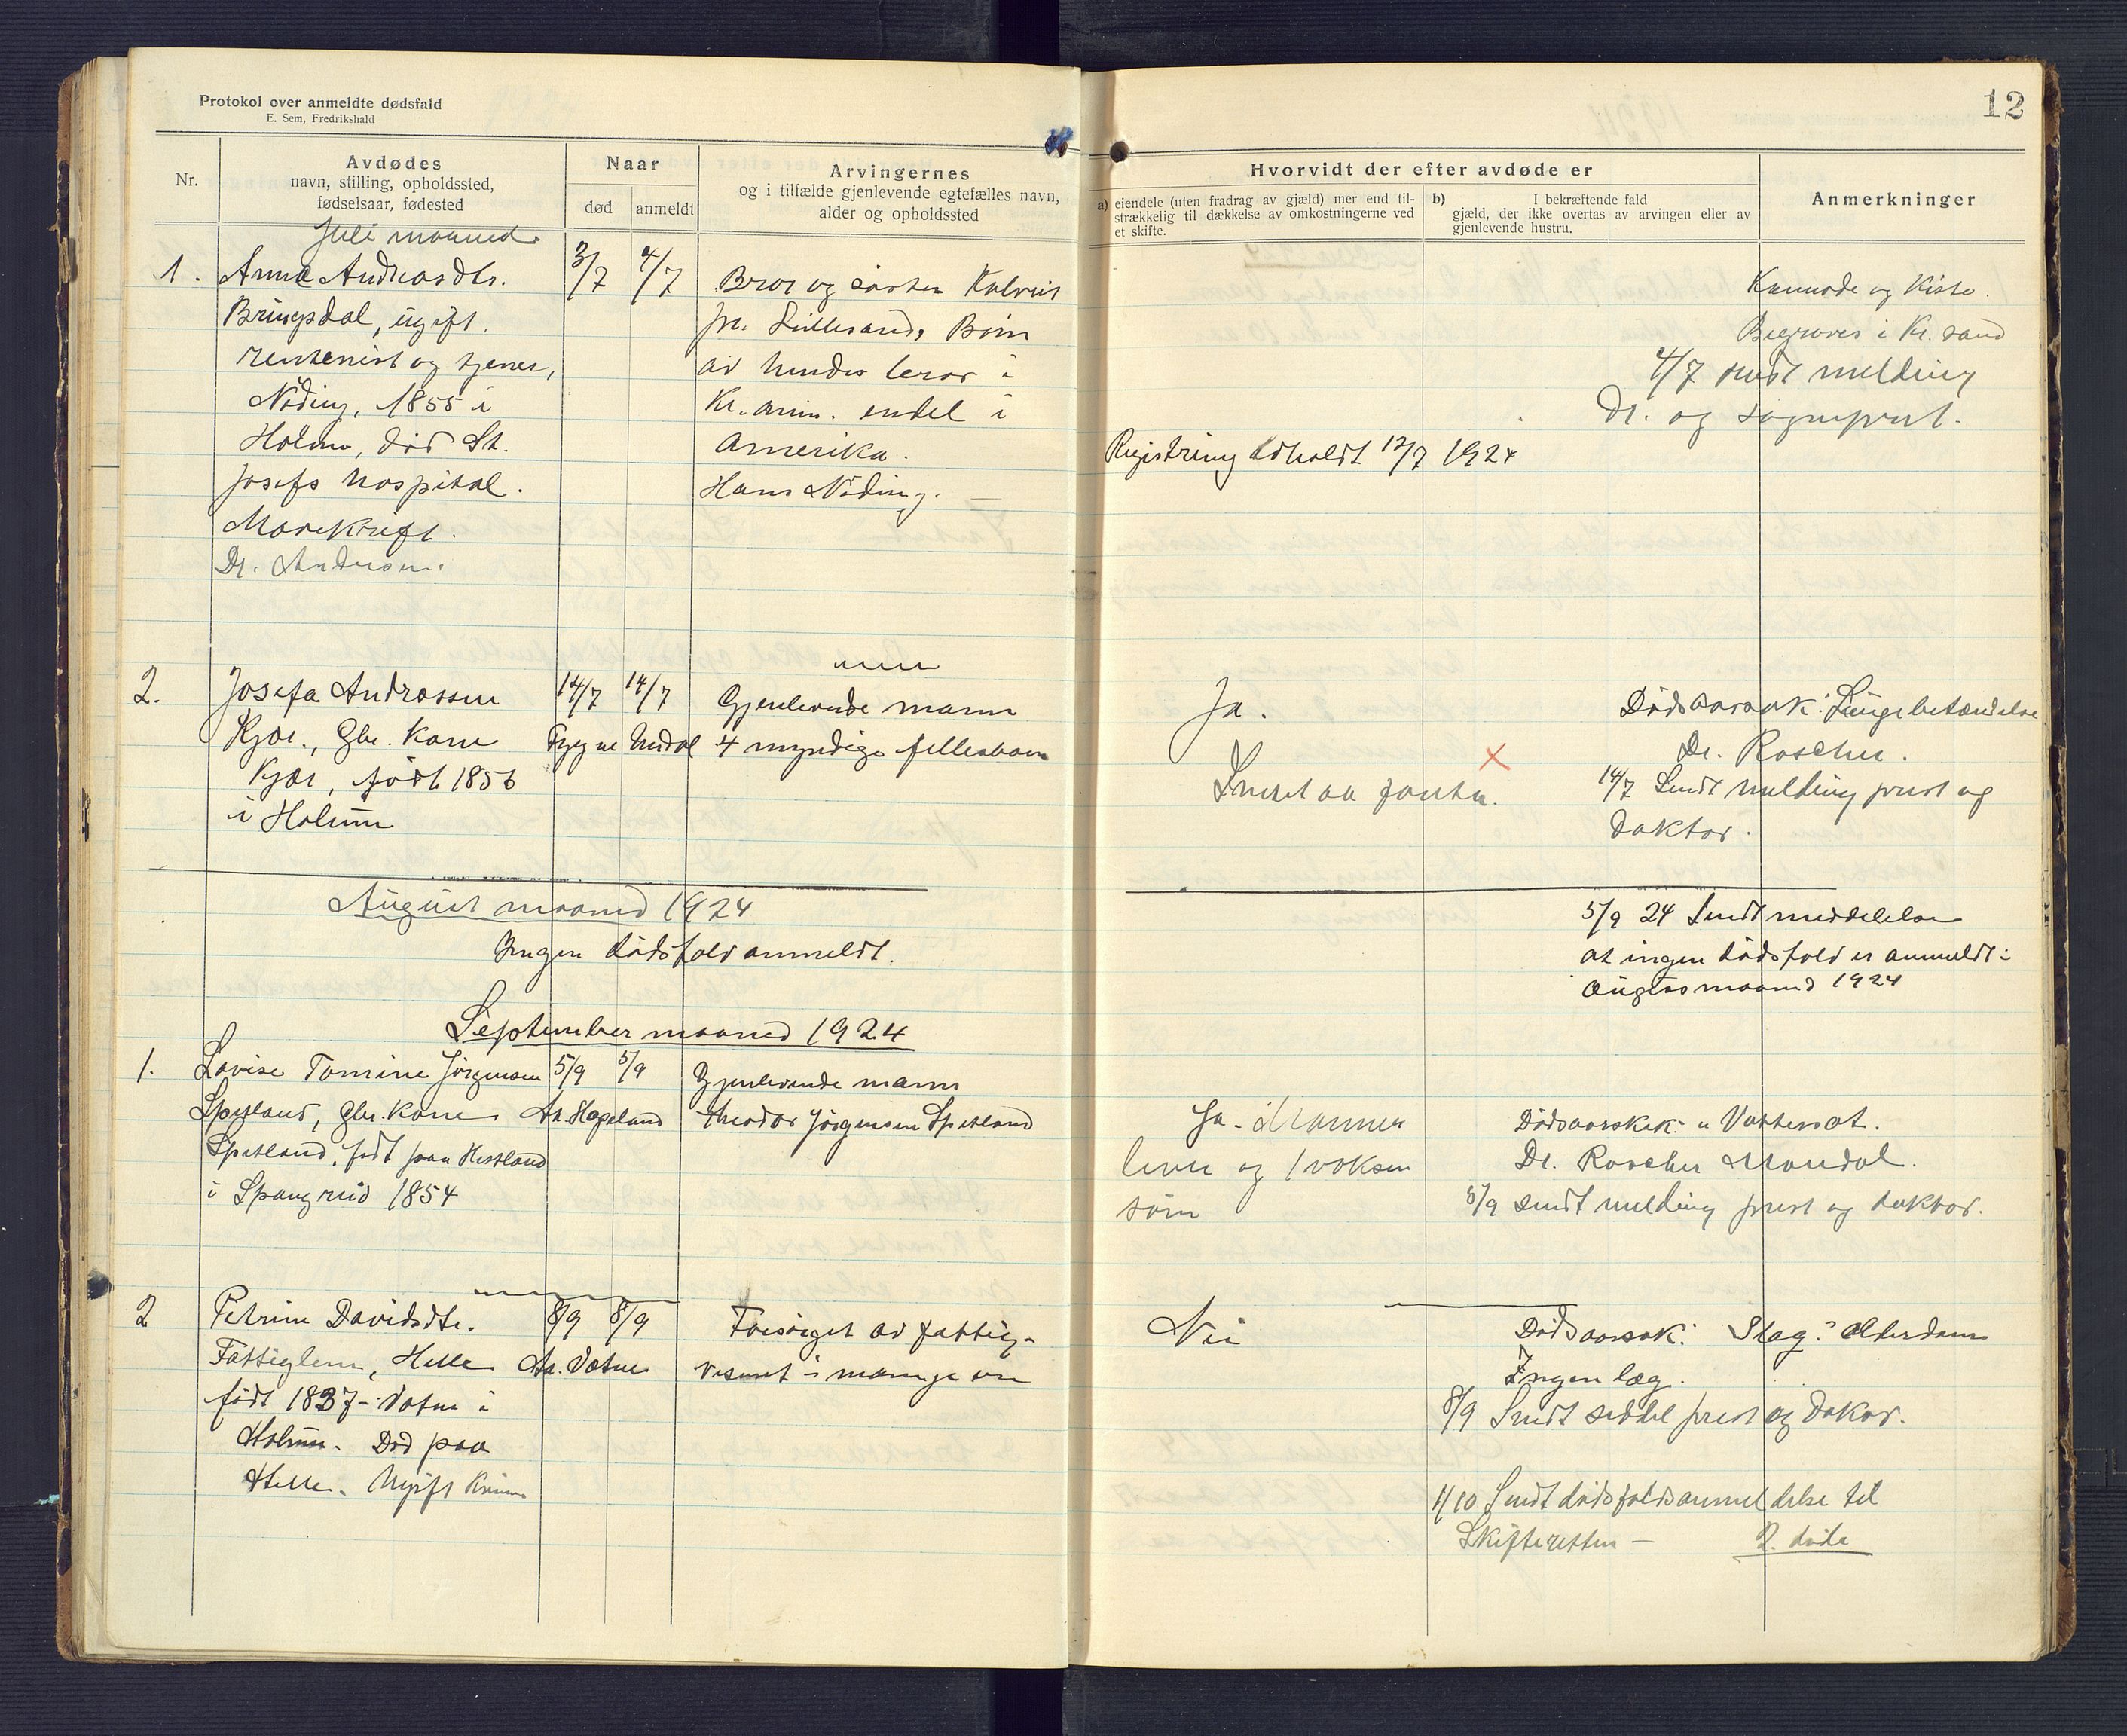 Protokol over anmeldte dødsfald
E. Sem, Fredrikshald
12
Nr.
Avdødes
navn, stilling, opholdssted,
fødselsaar, fødested
Naar
død
anmeldt
Arvingernes
og i tilfælde gjenlevende egtefælles navn,
alder og opholdssted
Hvorvidt der efter avdøde er
a) eiendele (uten fradrag av gjæld) mer end til-
strækkelig til dækkelse av omkostningerne ved
et skifte.
b) I bekræftende fald
gjæld, der ikke overtas av arvingen eller av
gjenlevende hustru.
Anmerkninger
Juli maaned
1. Anna Andreasdtr.
Bringsdal, ugift.
rentenist og tjener,
Nöding, 1855 i
Holum, död St.
Josefs hospital.
Mavekræft.
Dr. Andersen.
3/7
4/7
Bror og söster
fr. Lillesand, Börn
av hendes
Kr.ann. endel i
Amerika.
Hans Nöding.
Registrering avholdt 12/7 1924
Kommode og Kiste.
Begraves i Kr. sand
4/7 sendt melding
Dr. og sogneprest.
2. Josefa Andreassen
Kjær, Gbr. Kone
Kjær, födt 1856
i Holum
14/7
14/7
Gjenlevende mann
4 myndige fellesbarn
Ja.
X
Dödsaarsak: Lungebetændelse
Dr. Roscher.
14/7 Sendt melding prest og
doktor.
August maaned 1924
Ingen dödsfald anmeldt.
5/9 24 Sendt meddelelse
at ingen dödsfald er anmeldt i
August maaned 1924
September maaned 1924
1. Lovise Tomine Jörgensen
Spetland, Gbr. Kone
Spetland, födt paa Hestland
i Spangreid 1854
5/9
5/9
At. Hageland
Gjenlevende mann
Theodor Jörgensen Spetland
Ja. Mannen
lever og 1 voksen
sönn
Dödsaarsak: Vattersot.
Dr. Roscher Mandal.
5/9 sendt melding prest og doktor.
2 Petrine Davidsdtr.
Fattiglem, Helle
födt 1837 - Vatne i
Holum. Död paa
Helle. Ugift Kvinne
8/9
8/9
At. Vatne
Forsörget av fattig-
vesenet i mange aar
Nei
Dödsaarsak: Slag? Alderdom
Ingen læge.
8/9 Sendt seddel prest og Doktor.
1/10 Sendt dödsfaldsanmeldelse til
Skifteretten - 2 döde